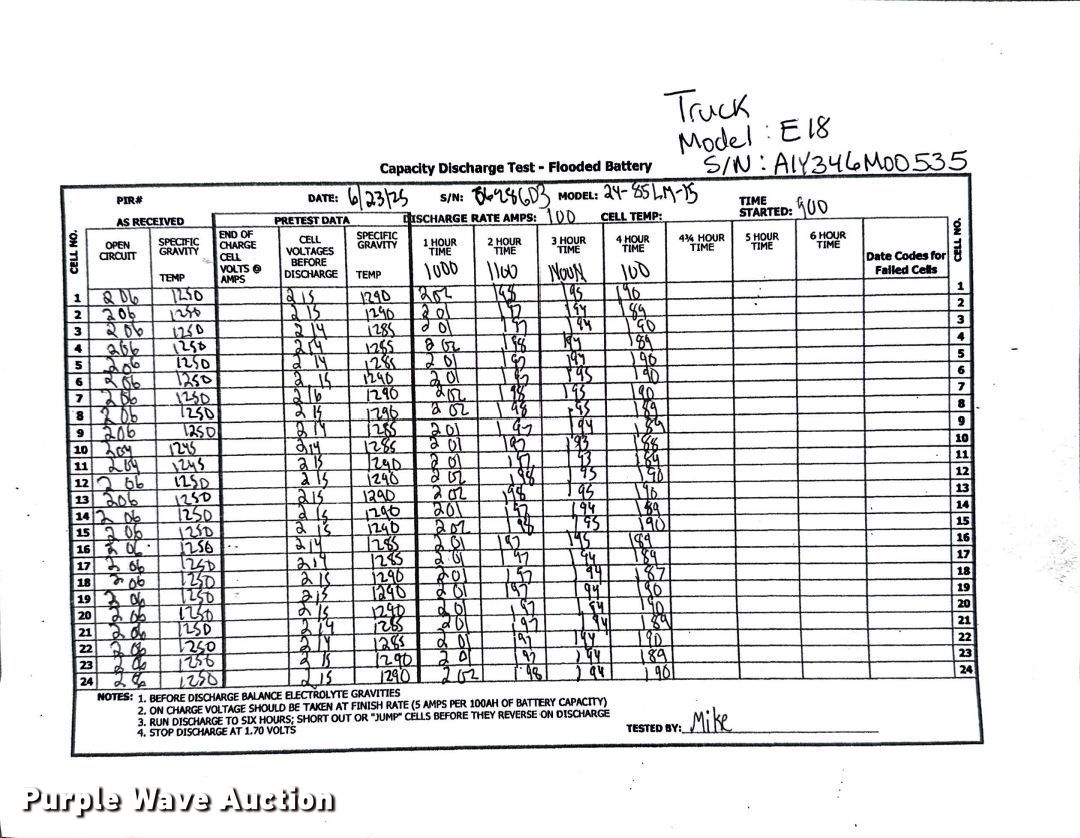 Truck
Model : E18
S/N : A1Y346M00535
Capacity Discharge Test - Flooded Battery
PIR# DATE: 6/23/25 S/N: MODEL: 24-85LM-15 TIME STARTED: 900
AS RECEIVED PRETEST DATA DISCHARGE RATE AMPS: 100 CELL TEMP:
CELL NO. OPEN CIRCUIT SPECIFIC GRAVITY TEMP END OF CHARGE CELL VOLTS @ AMPS CELL VOLTAGES BEFORE DISCHARGE SPECIFIC GRAVITY TEMP 1 HOUR TIME 1000 2 HOUR TIME 1100 3 HOUR TIME NOON 4 HOUR TIME 100 4¾ HOUR TIME 5 HOUR TIME 6 HOUR TIME Date Codes for Failed Cells CELL NO.
1 206 1250 215 1290 202 198 195 190 1
2 206 1250 215 1290 201 197 194 189 2
3 206 1250 214 1285 201 197 194 190 3
4 206 1250 214 1285 202 198 194 189 4
5 206 1250 214 1285 201 197 194 190 5
6 206 1250 215 1290 201 197 195 190 6
7 206 1250 216 1290 202 198 195 190 7
8 206 1250 215 1290 202 198 195 189 8
9 206 1250 214 1285 201 197 194 189 9
10 204 1245 214 1285 201 197 193 188 10
11 204 1245 215 1290 201 197 193 189 11
12 206 1250 215 1290 202 198 195 190 12
13 206 1250 215 1290 202 198 195 190 13
14 206 1250 215 1290 201 197 194 189 14
15 206 1250 215 1290 202 198 195 190 15
16 206 1250 214 1285 201 197 195 189 16
17 206 1250 214 1285 201 197 194 189 17
18 206 1250 215 1290 201 197 194 187 18
19 206 1250 215 1290 201 197 194 190 19
20 206 1250 215 1290 201 197 194 190 20
21 206 1250 214 1285 201 197 194 189 21
22 206 1250 214 1285 201 197 194 190 22
23 206 1250 215 1290 201 197 194 189 23
24 206 1250 215 1290 202 198 194 190 24
NOTES: 1. BEFORE DISCHARGE BALANCE ELECTROLYTE GRAVITIES
2. ON CHARGE VOLTAGE SHOULD BE TAKEN AT FINISH RATE (5 AMPS PER 100AH OF BATTERY CAPACITY)
3. RUN DISCHARGE TO SIX HOURS; SHORT OUT OR "JUMP" CELLS BEFORE THEY REVERSE ON DISCHARGE
4. STOP DISCHARGE AT 1.70 VOLTS
TESTED BY: Mike
Purple Wave Auction